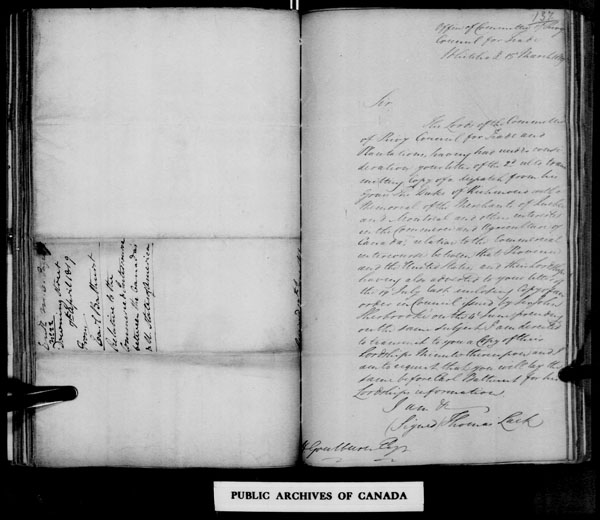 137
Office of Committee of Privy
Council for Trade
Whitehall March
Sir
The Lords of the Committee
of Privy Council for Trade and
Plantations, having had under consi-
deration your letter of the 2d ulto trans-
mitting Copy of a dispatch from his
Grace the Duke of Richmond with a
Memorial of the Merchants of Quebec
and Montreal and others interested
in the Commerce and Agriculture of
Canada, relative to the Commercial
intercourse between that Province
and the United States, and their Lordships
having also adverted to your letter of
the July last enclosing Copy of an
order in Council issued by Sir John
Sherbrooke on the June preceding
on the same subject, I am directed
to transmit to you a Copy of their
Lordships Minute thereupon, and I
am to request that you will lay the
same before Earl Bathurst for his
Lordships information
I am &c
(Signed) Thomas Lack
Goulburn Esqr
Downing Street
April 1819
From
Earl Bathurst
Relative to the
Commerce & Intercourse
between the Canadas
& the States of America
PUBLIC ARCHIVES OF CANADA